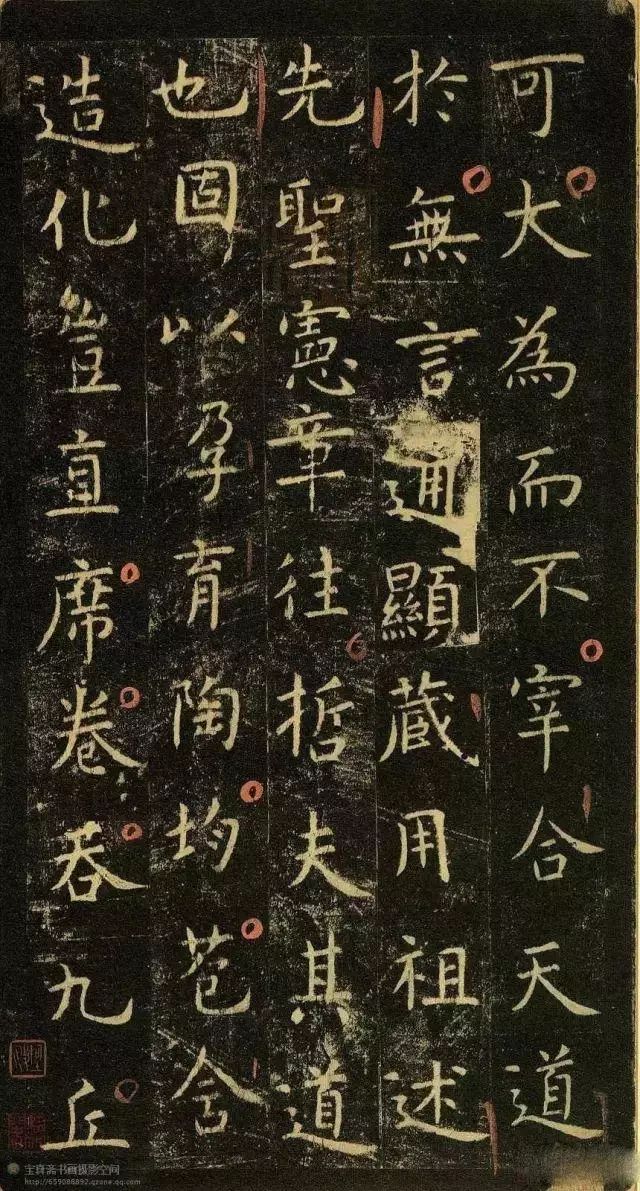 可大為而不宰合天道
於無言通顯藏用祖述
先聖憲章往哲夫其道
也固以孕育陶均苞含
造化豈直席卷吞九丘
宝真斋书画摄影空间
http://659086892.qzone.qq.com